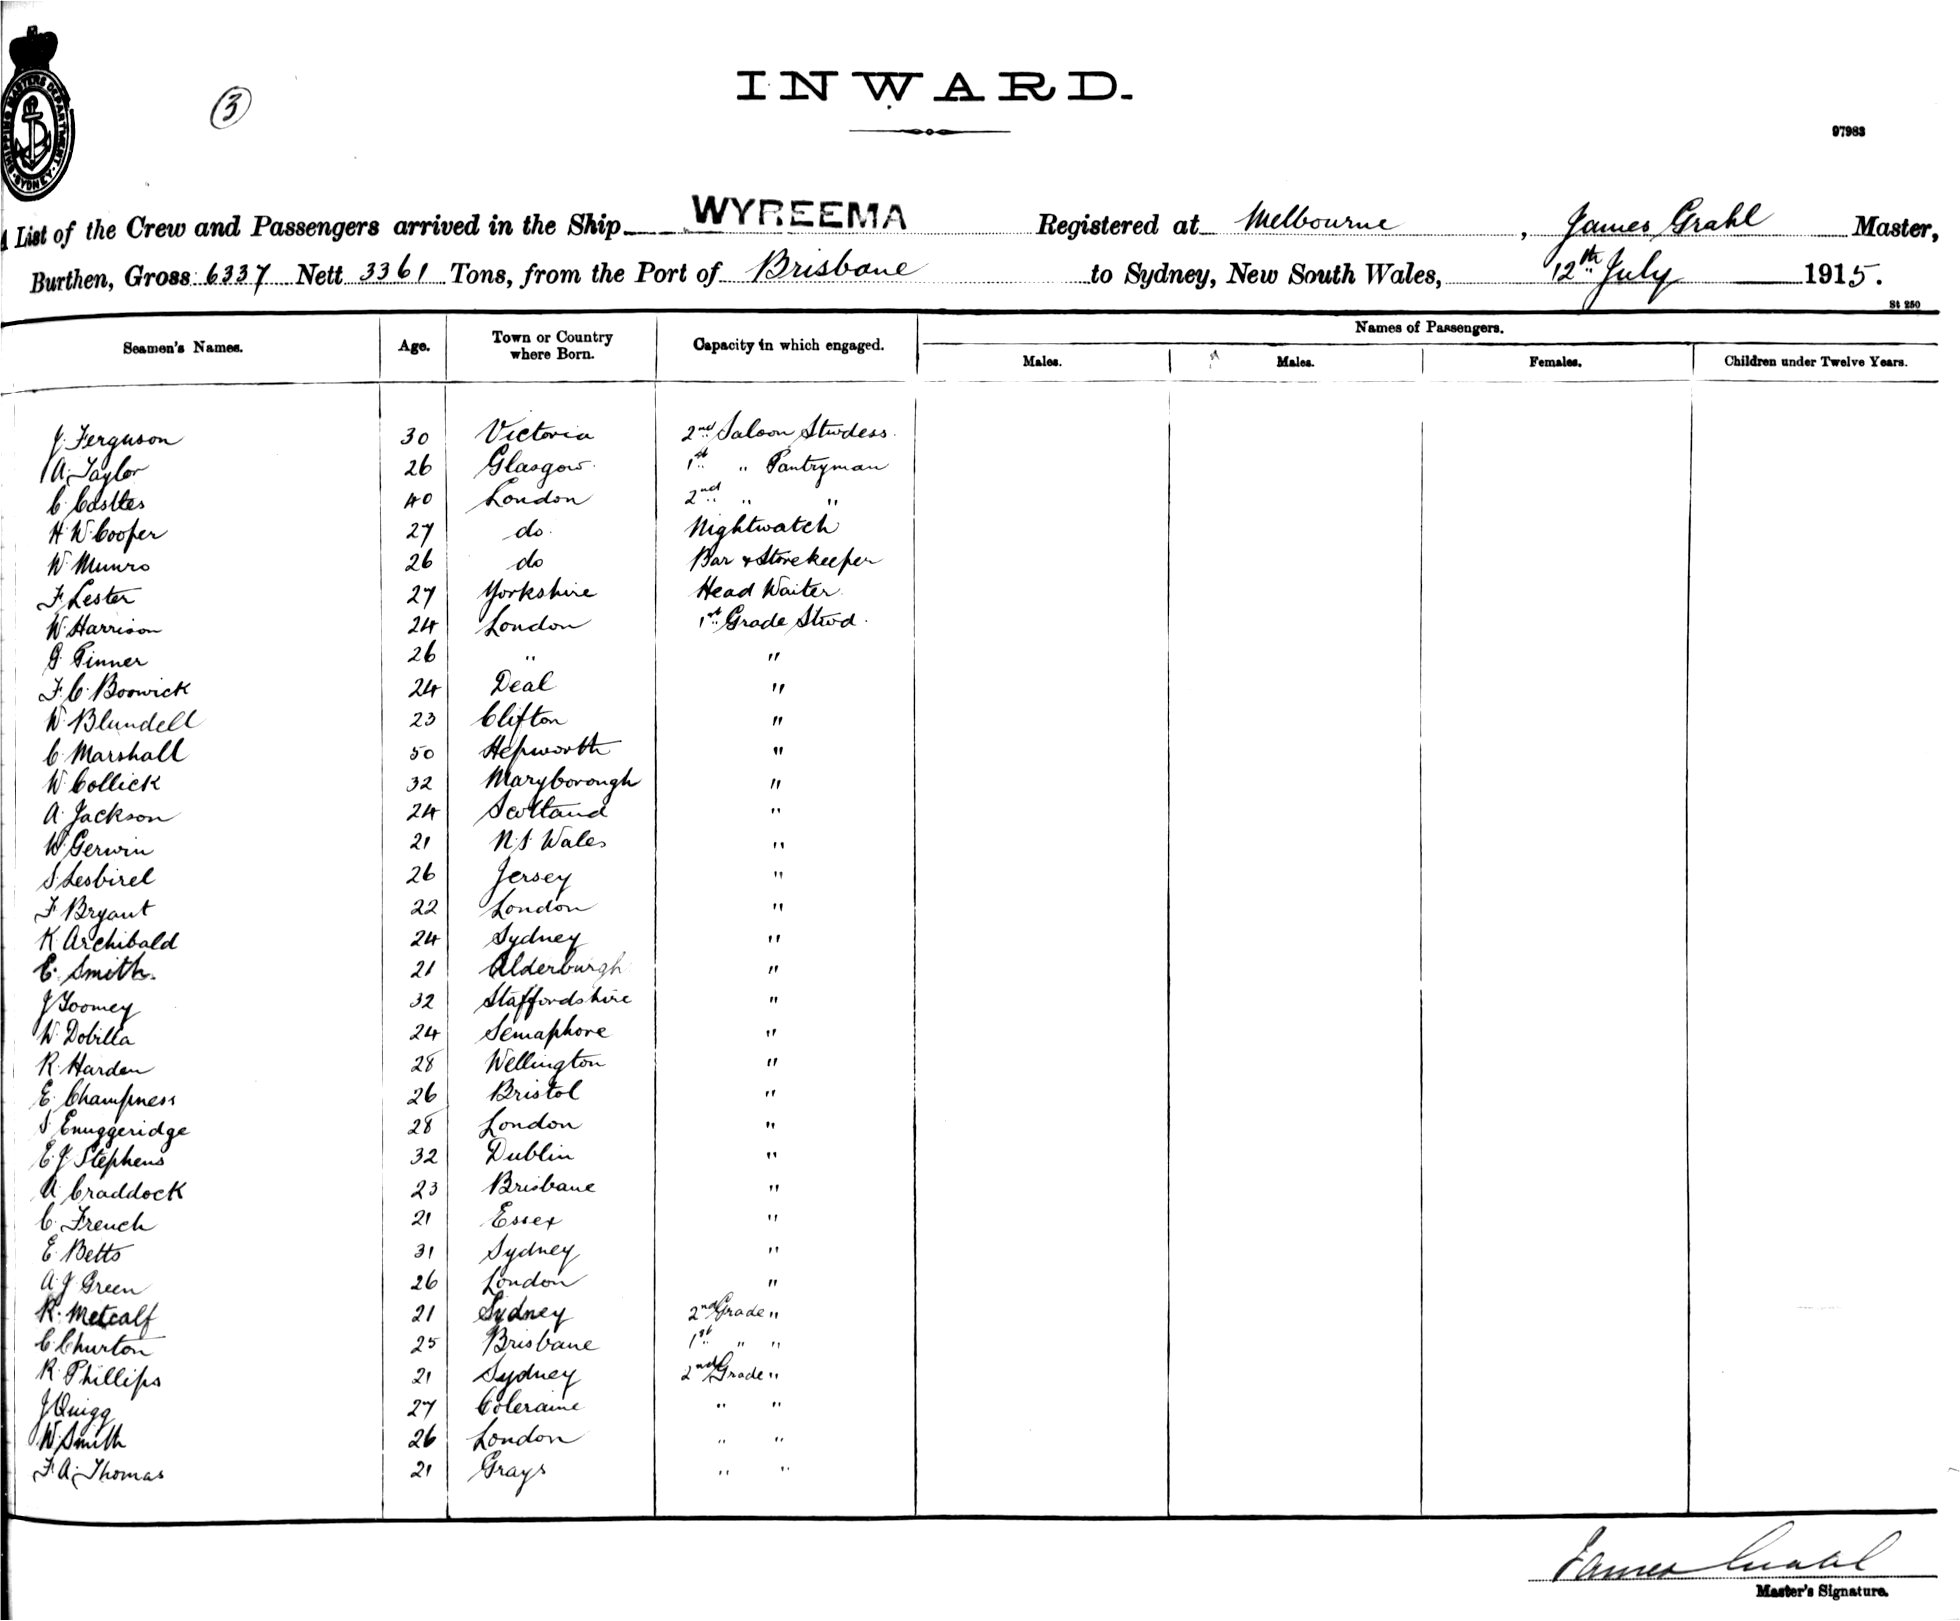 INWARD.
3
97983
SHIPPING MASTERS DEPARTMENT
SYDNEY
A List of the Crew and Passengers arrived in the Ship WYREEMA Registered at Melbourne, James Grahl Master,
Burthen, Gross 6337 Nett 3361 Tons, from the Port of Brisbane to Sydney, New South Wales, 12th July 1915.
St 250
Seamen's Names. Age. Town or Country where Born. Capacity in which engaged. Names of Passengers.
Males. Males. Females. Children under Twelve Years.
J. Ferguson 30 Victoria 2nd Saloon Stwdess.
A. Taylor 26 Glasgow 1st " Pantryman
C. Castles 40 London 2nd " "
H. W. Cooper 27 do. Nightwatch
W. Munro 26 do Bar & Storekeeper
F. Lester 27 Yorkshire Head Waiter
W. Harrison 24 London 1st Grade Stwd.
G. Pinner 26 " "
F. C. Borwick 24 Deal "
W. Blundell 23 Clifton "
C. Marshall 50 Hepworth "
W. Collick 32 Maryborough "
A. Jackson 24 Scotland "
W. Gerwin 21 N. S. Wales "
S. Lesbirel 26 Jersey "
F. Bryant 22 London "
K. Archibald 24 Sydney "
E. Smith. 21 Alderburgh "
J. Toomey 32 Staffordshire "
W. Dobilla 24 Semaphore "
R. Harden 28 Wellington "
E. Champness 26 Bristol "
S. Enuggeridge 28 London "
E. J. Stephens 32 Dublin "
A. Craddock 23 Brisbane "
C. French 21 Essex "
E. Betts 31 Sydney "
A. J. Green 26 London "
R. Metcalf 21 Sydney 2nd Grade "
C. Churton 25 Brisbane 1st " "
R. Phillips 21 Sydney 2nd Grade "
J. Quigg 27 Coleraine " "
W. Smith 26 London " "
F. A. Thomas 21 Grays " "
James Grahl
Master's Signature.